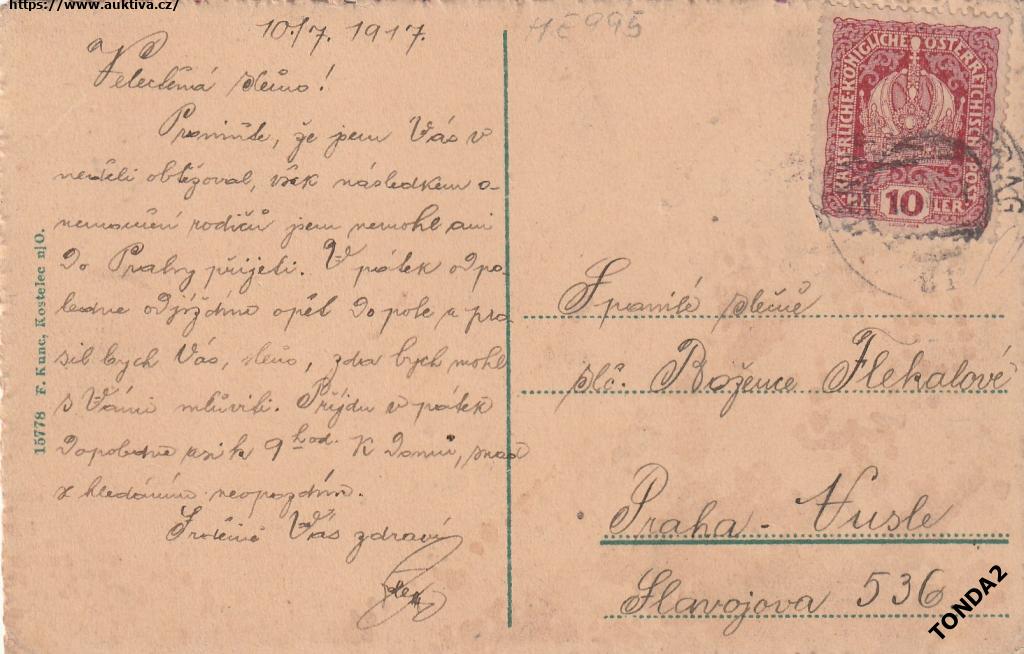 https://www.auktiva.cz/
10./7. 1917.
HE 995
Velectěná slečno!
Promiňte, že jsem Vás v
neděli obtěžoval, však následkem o-
nemocnění rodičů jsem nemohl ani
do Prahy přijeti. V pátek odpo-
ledne odjíždím opět do pole a pro
sil bych Vás, slečno, zda bych mohl
s Vámi mluviti. Přijdu v pátek
dopoledne asi k 9 hod. k domu, snad
s hledáním neopozdím.
Srdečně Vás zdraví
15778 F. Kunc, Kostelec n|O.
KAISERLICHEKÖNIGLICHE ÖSTERREICHISCHE POST
10 HELLER
PRAG
Spanilé slečně
slč. Božence Flekalové
Praha - Nusle
Slavojova 536
TONDA2